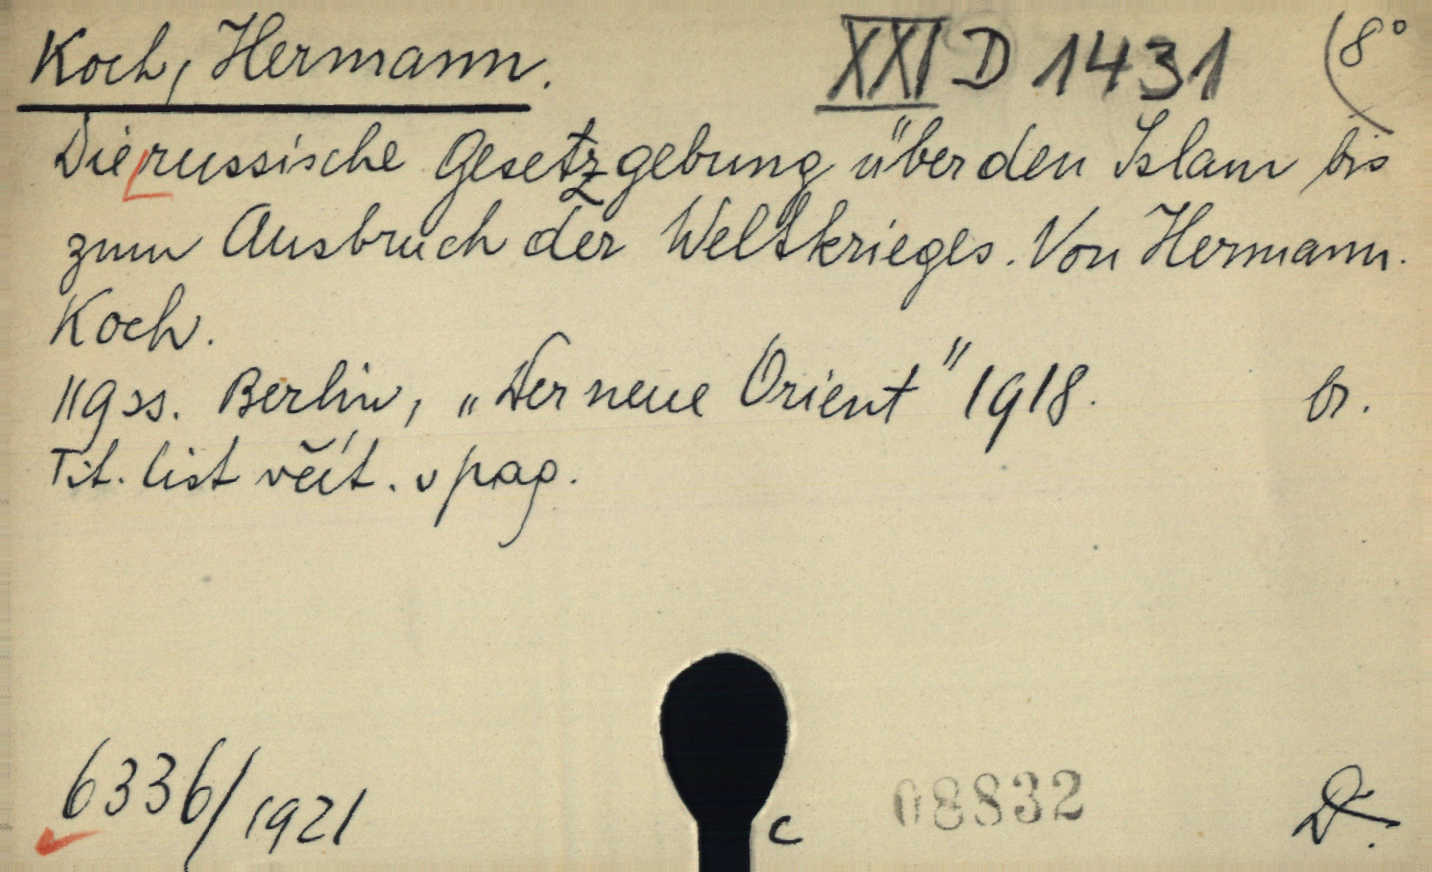 Koch, Hermann. XXI D 1431 (8°
Die russische Gesetzgebung über den Islam bis
zum Ausbruch der Weltkrieges. Von Hermann.
Koch.
119 ss. Berlin, „Der neue Orient" 1918. br.
Tit. list včít. v pag.
6336/1921 c 08832 D.